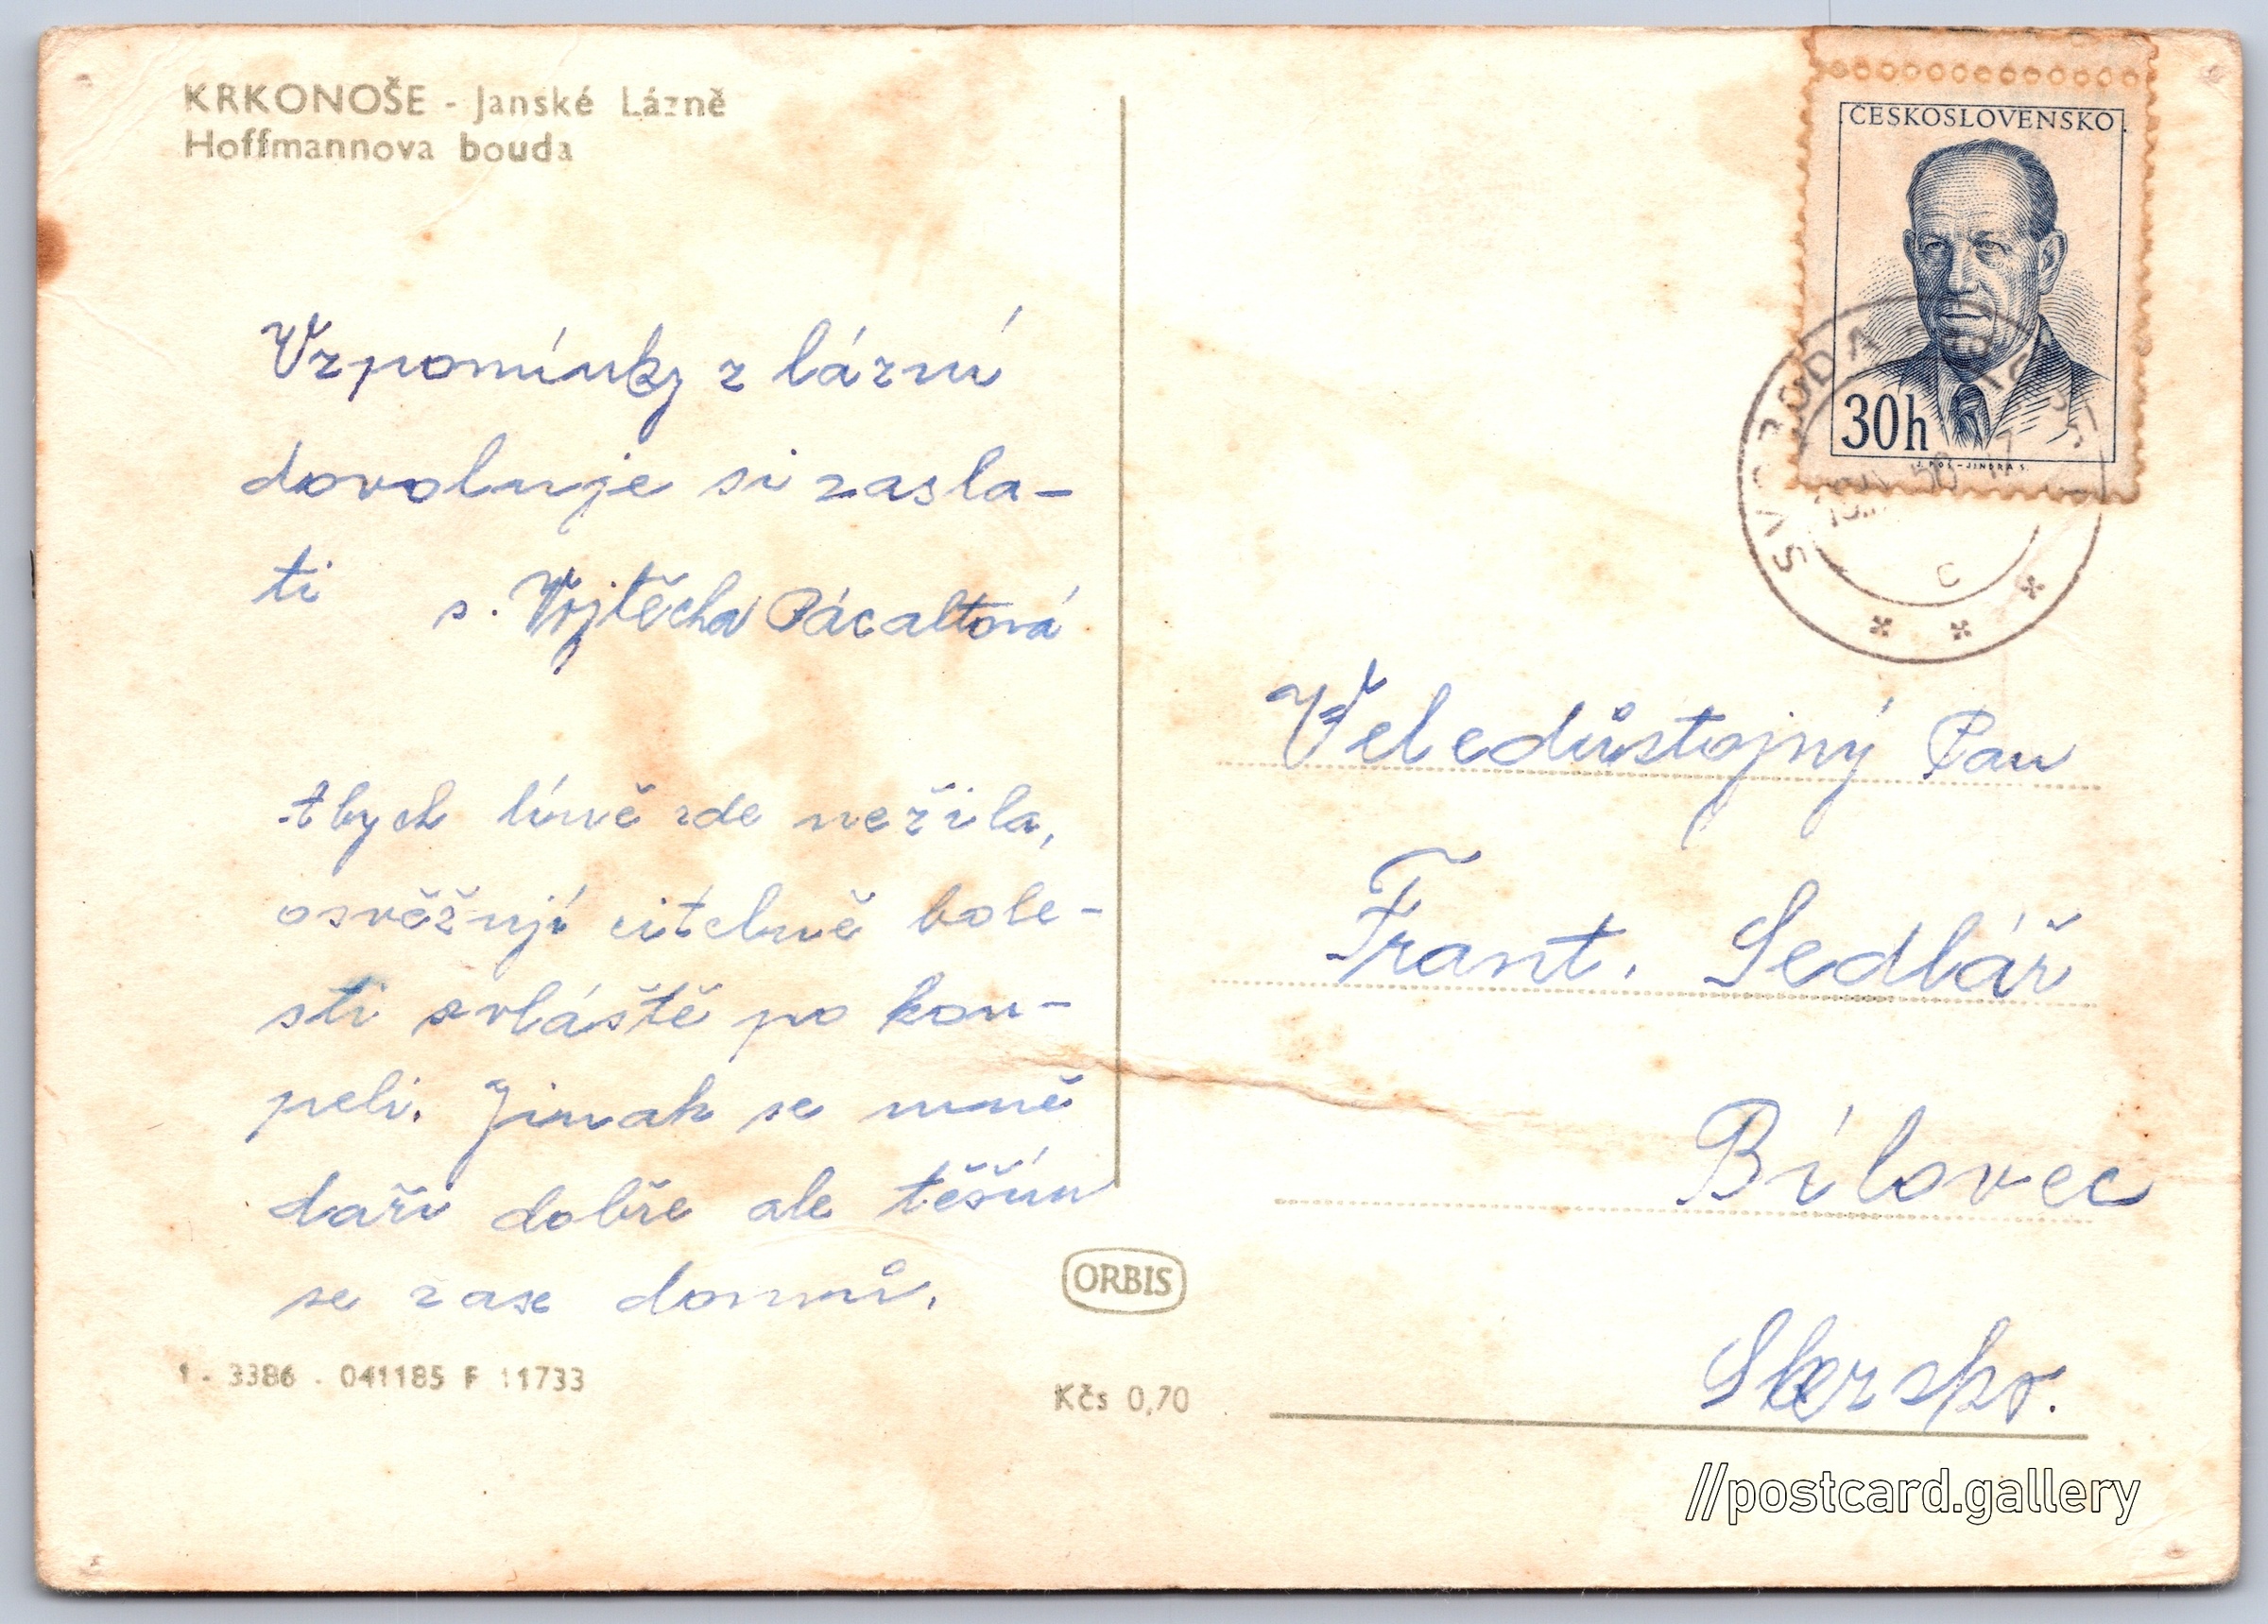 KRKONOŠE - Janské Lázně
Hoffmannova bouda
Vzpomínky z lázní
dovoluje si zasla-
ti s. Vojtěcha Pácaltová
bych líně zde nežila,
osvěžují citelně bole-
sti zvláště po kou-
peli. Jinak se mně
daří dobře ale těším
se zase domů.
1 - 3386 - 041185 F 11733
ORBIS
Kčs 0,70
ČESKOSLOVENSKO
30h
J. POŠ - JINDRA S.
SVOBODA
C
Veledůstojný Pan
Frant. Sedlář
Bílovec
//postcard.gallery